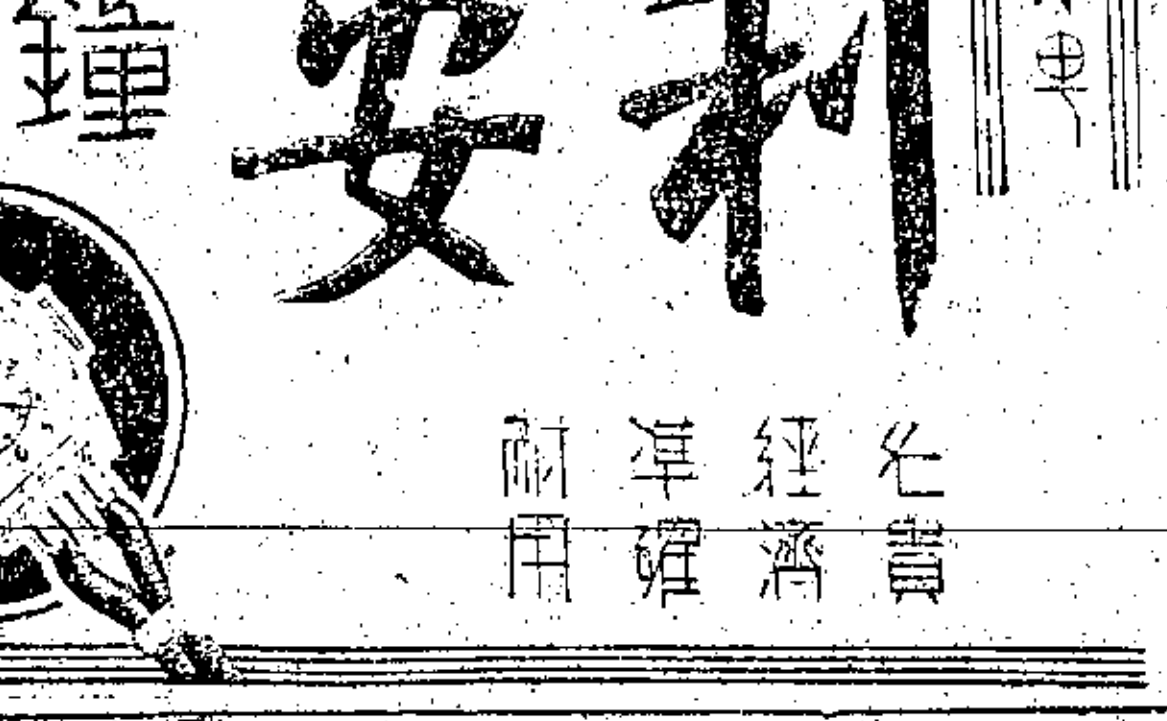 利安
鐘
貴
經濟
準確
耐用